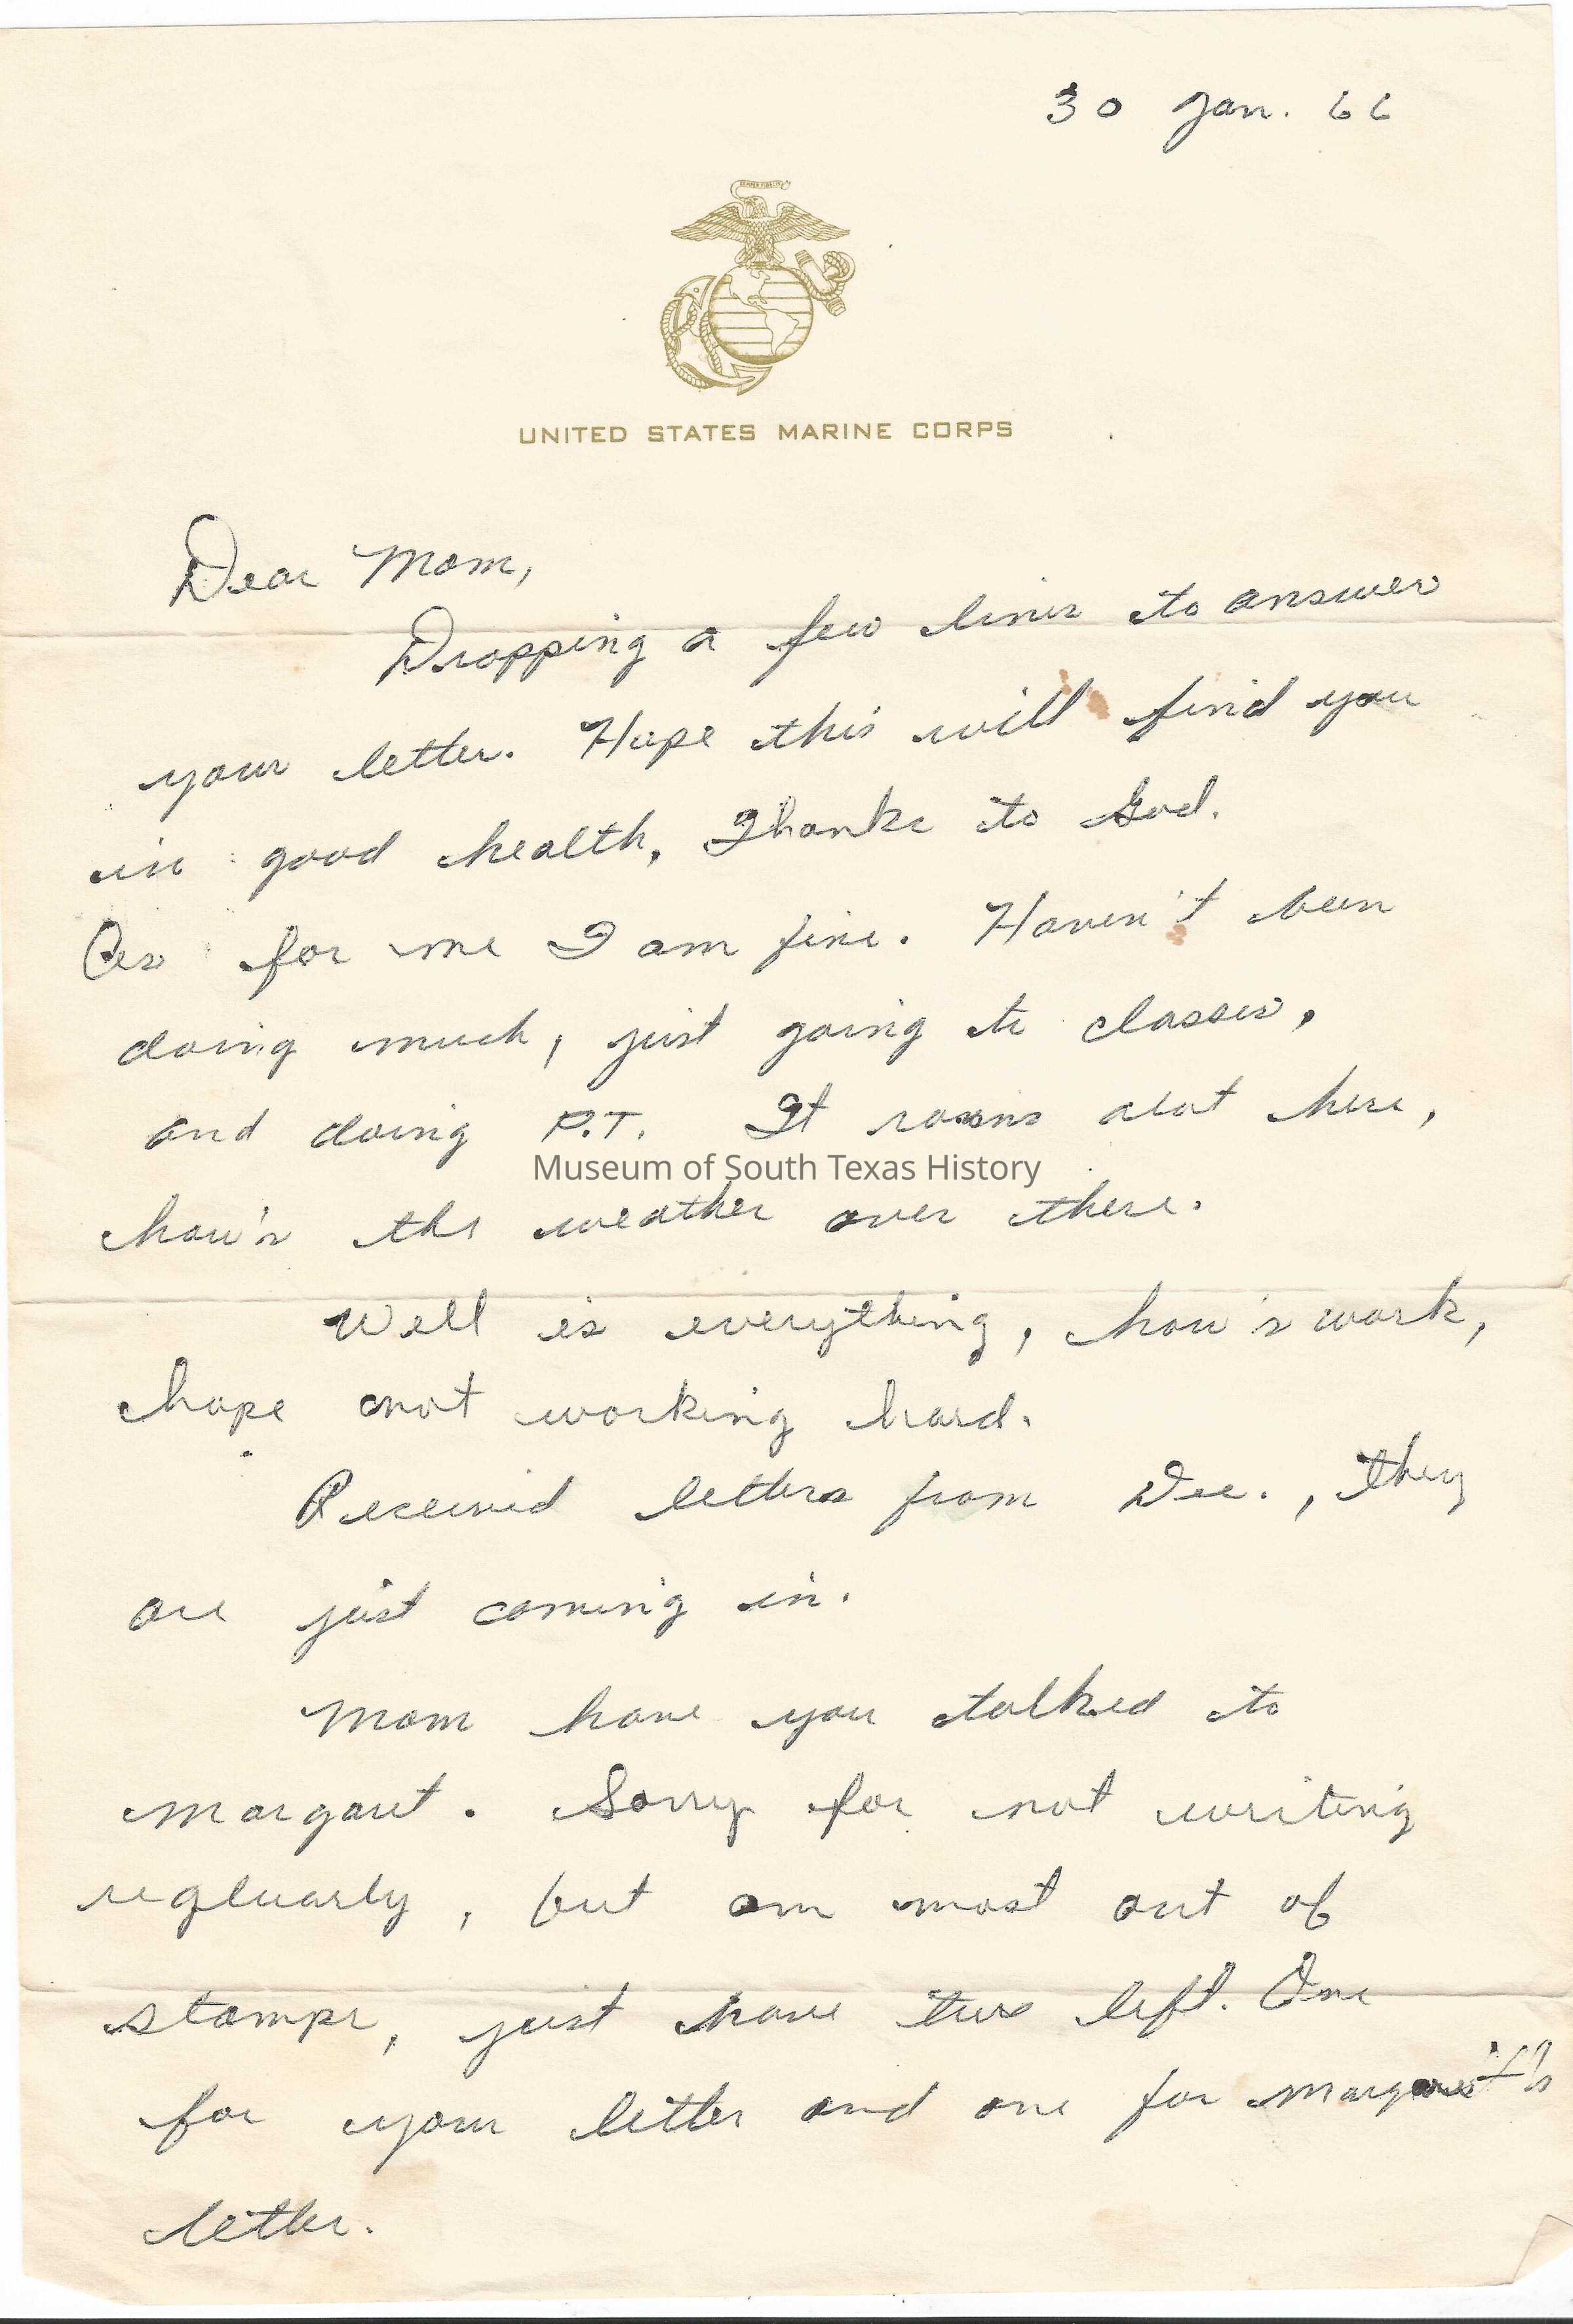 30 Jan. 66
SEMPER FIDELIS
UNITED STATES MARINE CORPS
Dear Mom,
Dropping a few lines to answer
your letter. Hope this will find you
in good health, Thanks to God.
As for me I am fine. Haven't been
doing much, just going to classes,
and doing P.T. It rains alot here,
Museum of South Texas History
how's the weather over there.
Well is everything, how's work,
hope not working hard.
Received letters from Dec., they
are just coming in.
Mom have you talked to
Margaret. Sorry for not writing
regluarly, but am most out of
stamps, just have two left. One
for your letter and one for Margaret's
letter.